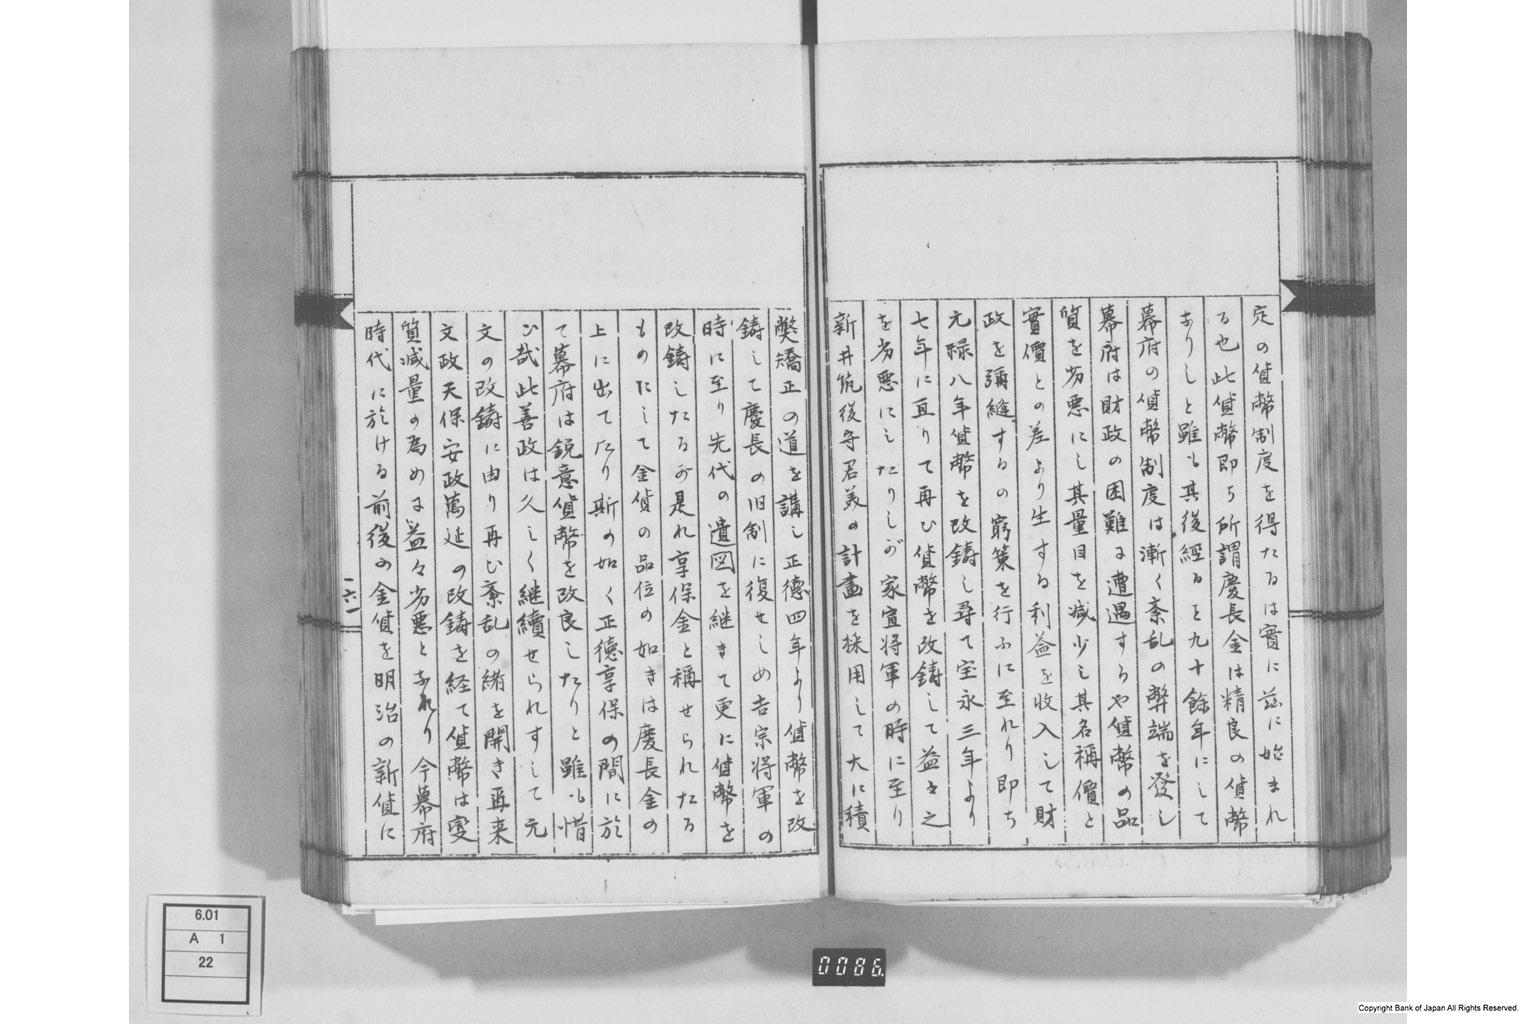 定の貨幣制度を得たるは實に茲に始まれ
る也此貨幣即ち所謂慶長金は精良の貨幣
なりしと雖も其後經ること九十餘年にして
幕府の貨幣制度は漸く紊乱の弊端を發し
幕府は財政の困難に遭遇するや貨幣の品
質を劣悪にし其量目を減少し其名稱價と
實價との差より生する利益を收入して財
政を彌縫するの窮策を行ふに至れり即ち
元禄八年貨幣を改鋳し尋て宝永三年より
七年に亘りて再ひ貨幣を改鋳して益々之
を劣悪にしたりしが家宣将軍の時に至り
新井筑後守君美の計畫を採用して大に積
弊矯正の道を講し正德四年より貨幣を改
鋳して慶長の旧制に復せしめ吉宗将軍の
時に至り先代の遺図を継きて更に貨幣を
改鋳したるが是れ享保金と稱せられたる
ものにして金貨の品位の如きは慶長金の
上に出てたり斯の如く正德享保の間に於
て幕府は鋭意貨幣を改良したりと雖も惜
ひ哉此善政は久しく継續せられすして元
文の改鋳に由り再ひ紊乱の緒を開き再来
文政天保安政萬延の改鋳を経て貨幣は変
質減量の為めに益々劣悪となれり今幕府
時代に於ける前後の金貨を明治の新貨に
二六一
6.01
A 1
22
0086
Copyright Bank of Japan All Rights Reserved.